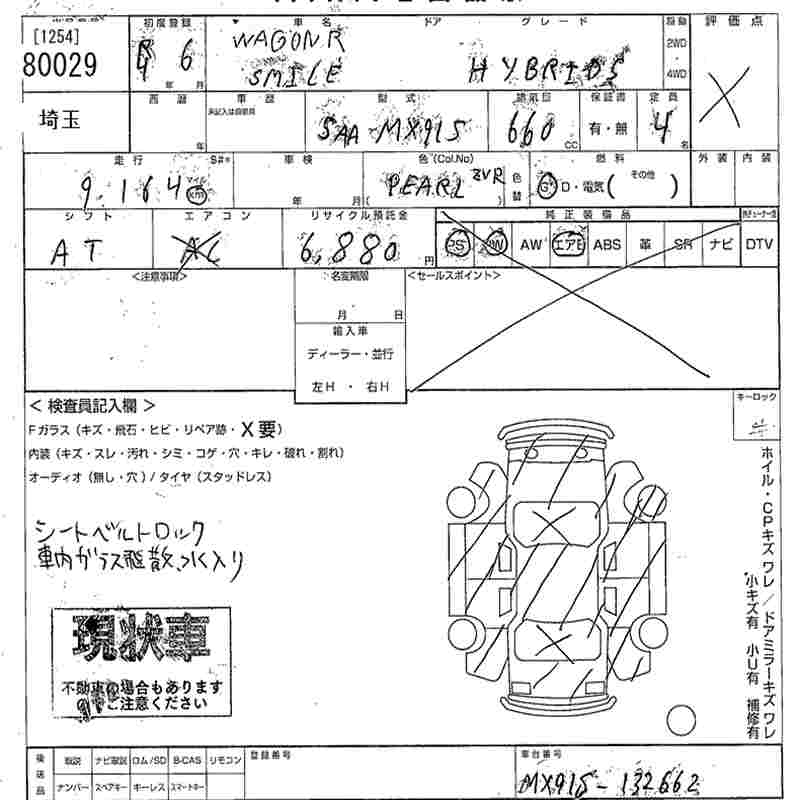 [1254]
初度登録 車名 ドア グレード 駆動 評価点
80029 R 4 6 年 月 WAGON R SMILE HYBRID S 2WD・4WD X
西暦 車歴 型式 排気量 保証書 定員
埼玉 年 5AA-MX91S 660 CC 有・無 4 名
走行 S#* 車検 色(Col.No) 燃料 外装 内装
9,164 マイル km 年 月 PEARL ZVR 色替 G・D・電気 (その他)
シフト エアコン リサイクル預託金 純正装備品
AT AC 6,880 円 PS PW AW エアB ABS 革 SR ナビ DTV
<注意事項> 名変期限 <セールスポイント>
月 日
輸入車
ディーラー・並行
左H ・ 右H
キーロック
< 検査員記入欄 >
Fガラス (キズ・飛石・ヒビ・リペア跡・X要)
内装 (キズ・スレ・汚れ・シミ・コゲ・穴・キレ・破れ・割れ)
オーディオ (無し・穴) / タイヤ (スタッドレス)
シートベルトロック
車内ガラス飛散、水入り
現状車
不動車の場合もあります
ご注意ください
ホイル・CPキズ ワレ/ドアミラーキズ ワレ
小キズ有 小U有 補修有
後送品 取説 ナビ取説 ロム/SD B-CAS リモコン 登録番号 車台番号
ナンバー スペアキー キーレス スマートキー MX91S-132662